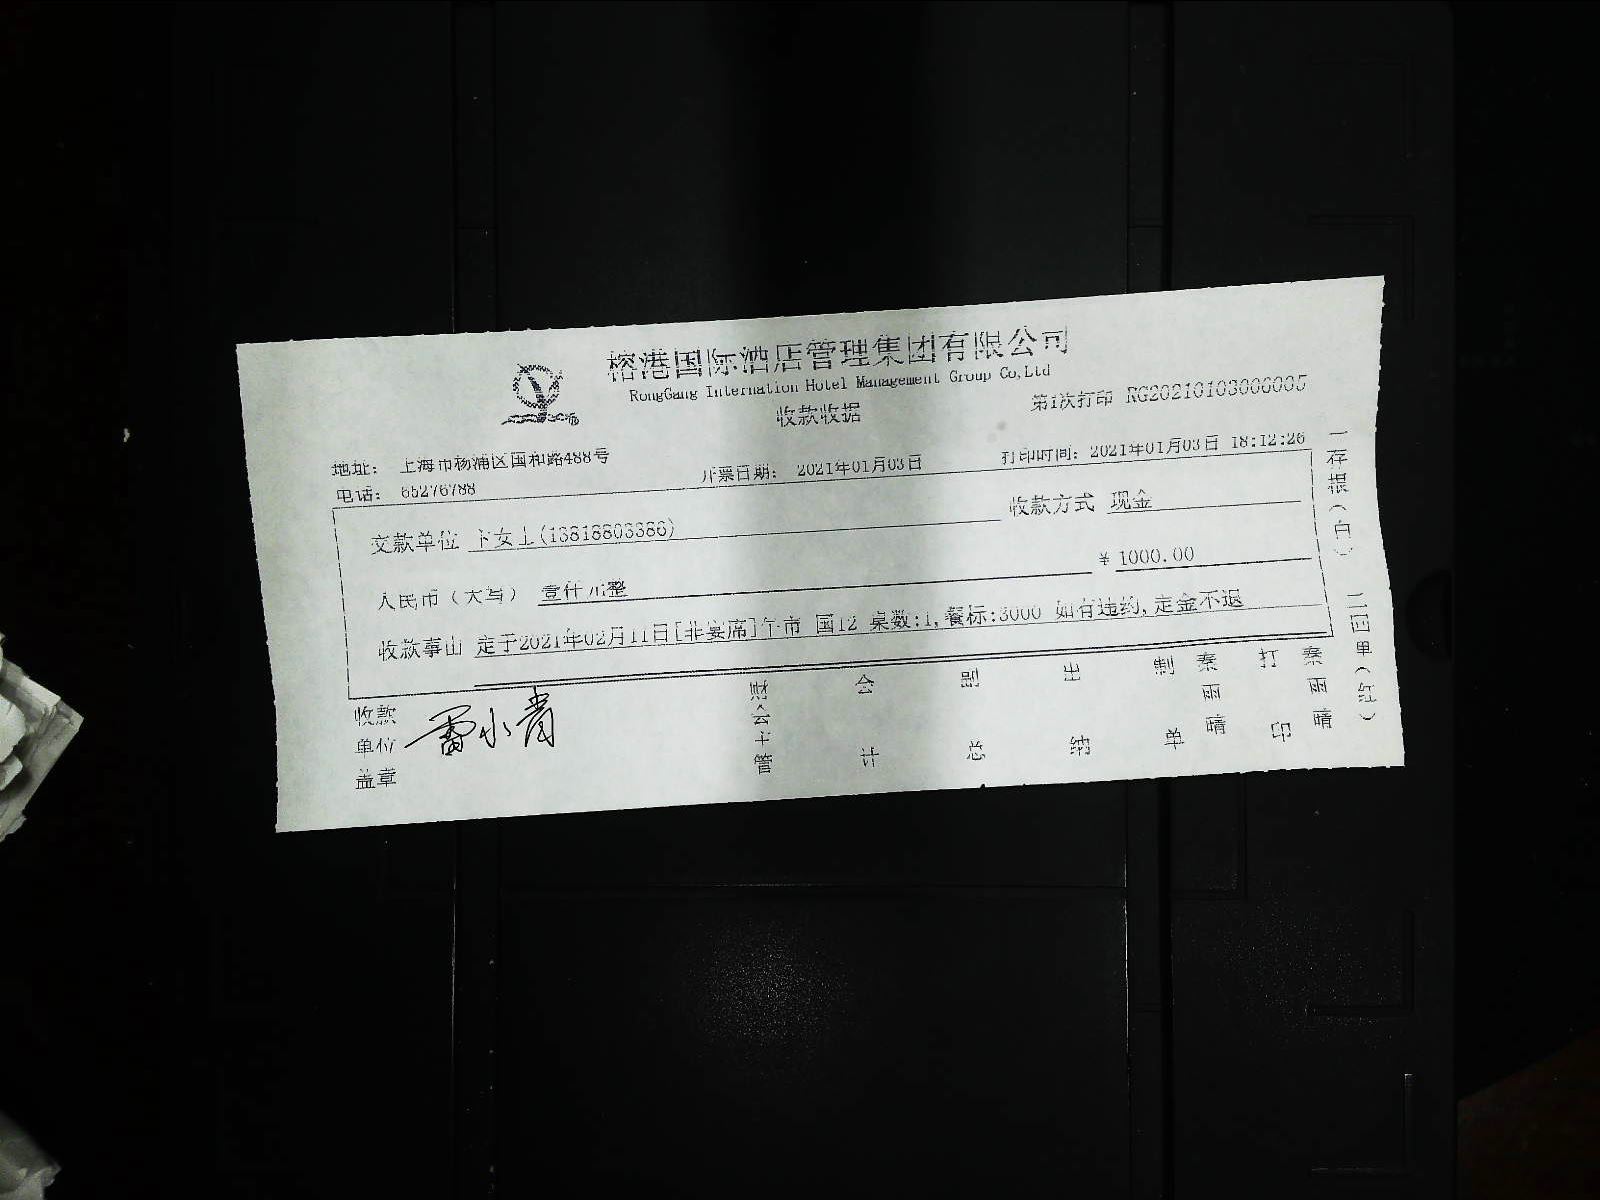 榕港国际酒店管理集团有限公司
RongGang Internation Hotel Management Group Co,Ltd
收款收据
第1次打印 RG20210103000005
地址: 上海市杨浦区国和路488号
电话: 65276788
开票日期: 2021年01月03日
打印时间: 2021年01月03日 18:12:26
交款单位 卞女士(13818803386)
收款方式 现金
人民币(大写) 壹仟元整
¥ 1000.00
收款事由 定于2021年02月11日[非宴席]午市 国12 桌数:1,餐标:3000 如有违约,定金不退
收款单位盖章
雷小青
财会主管
会计
副总
出纳
制单
秦雨晴
打印
秦雨晴
一存根(白) 二回单(红)